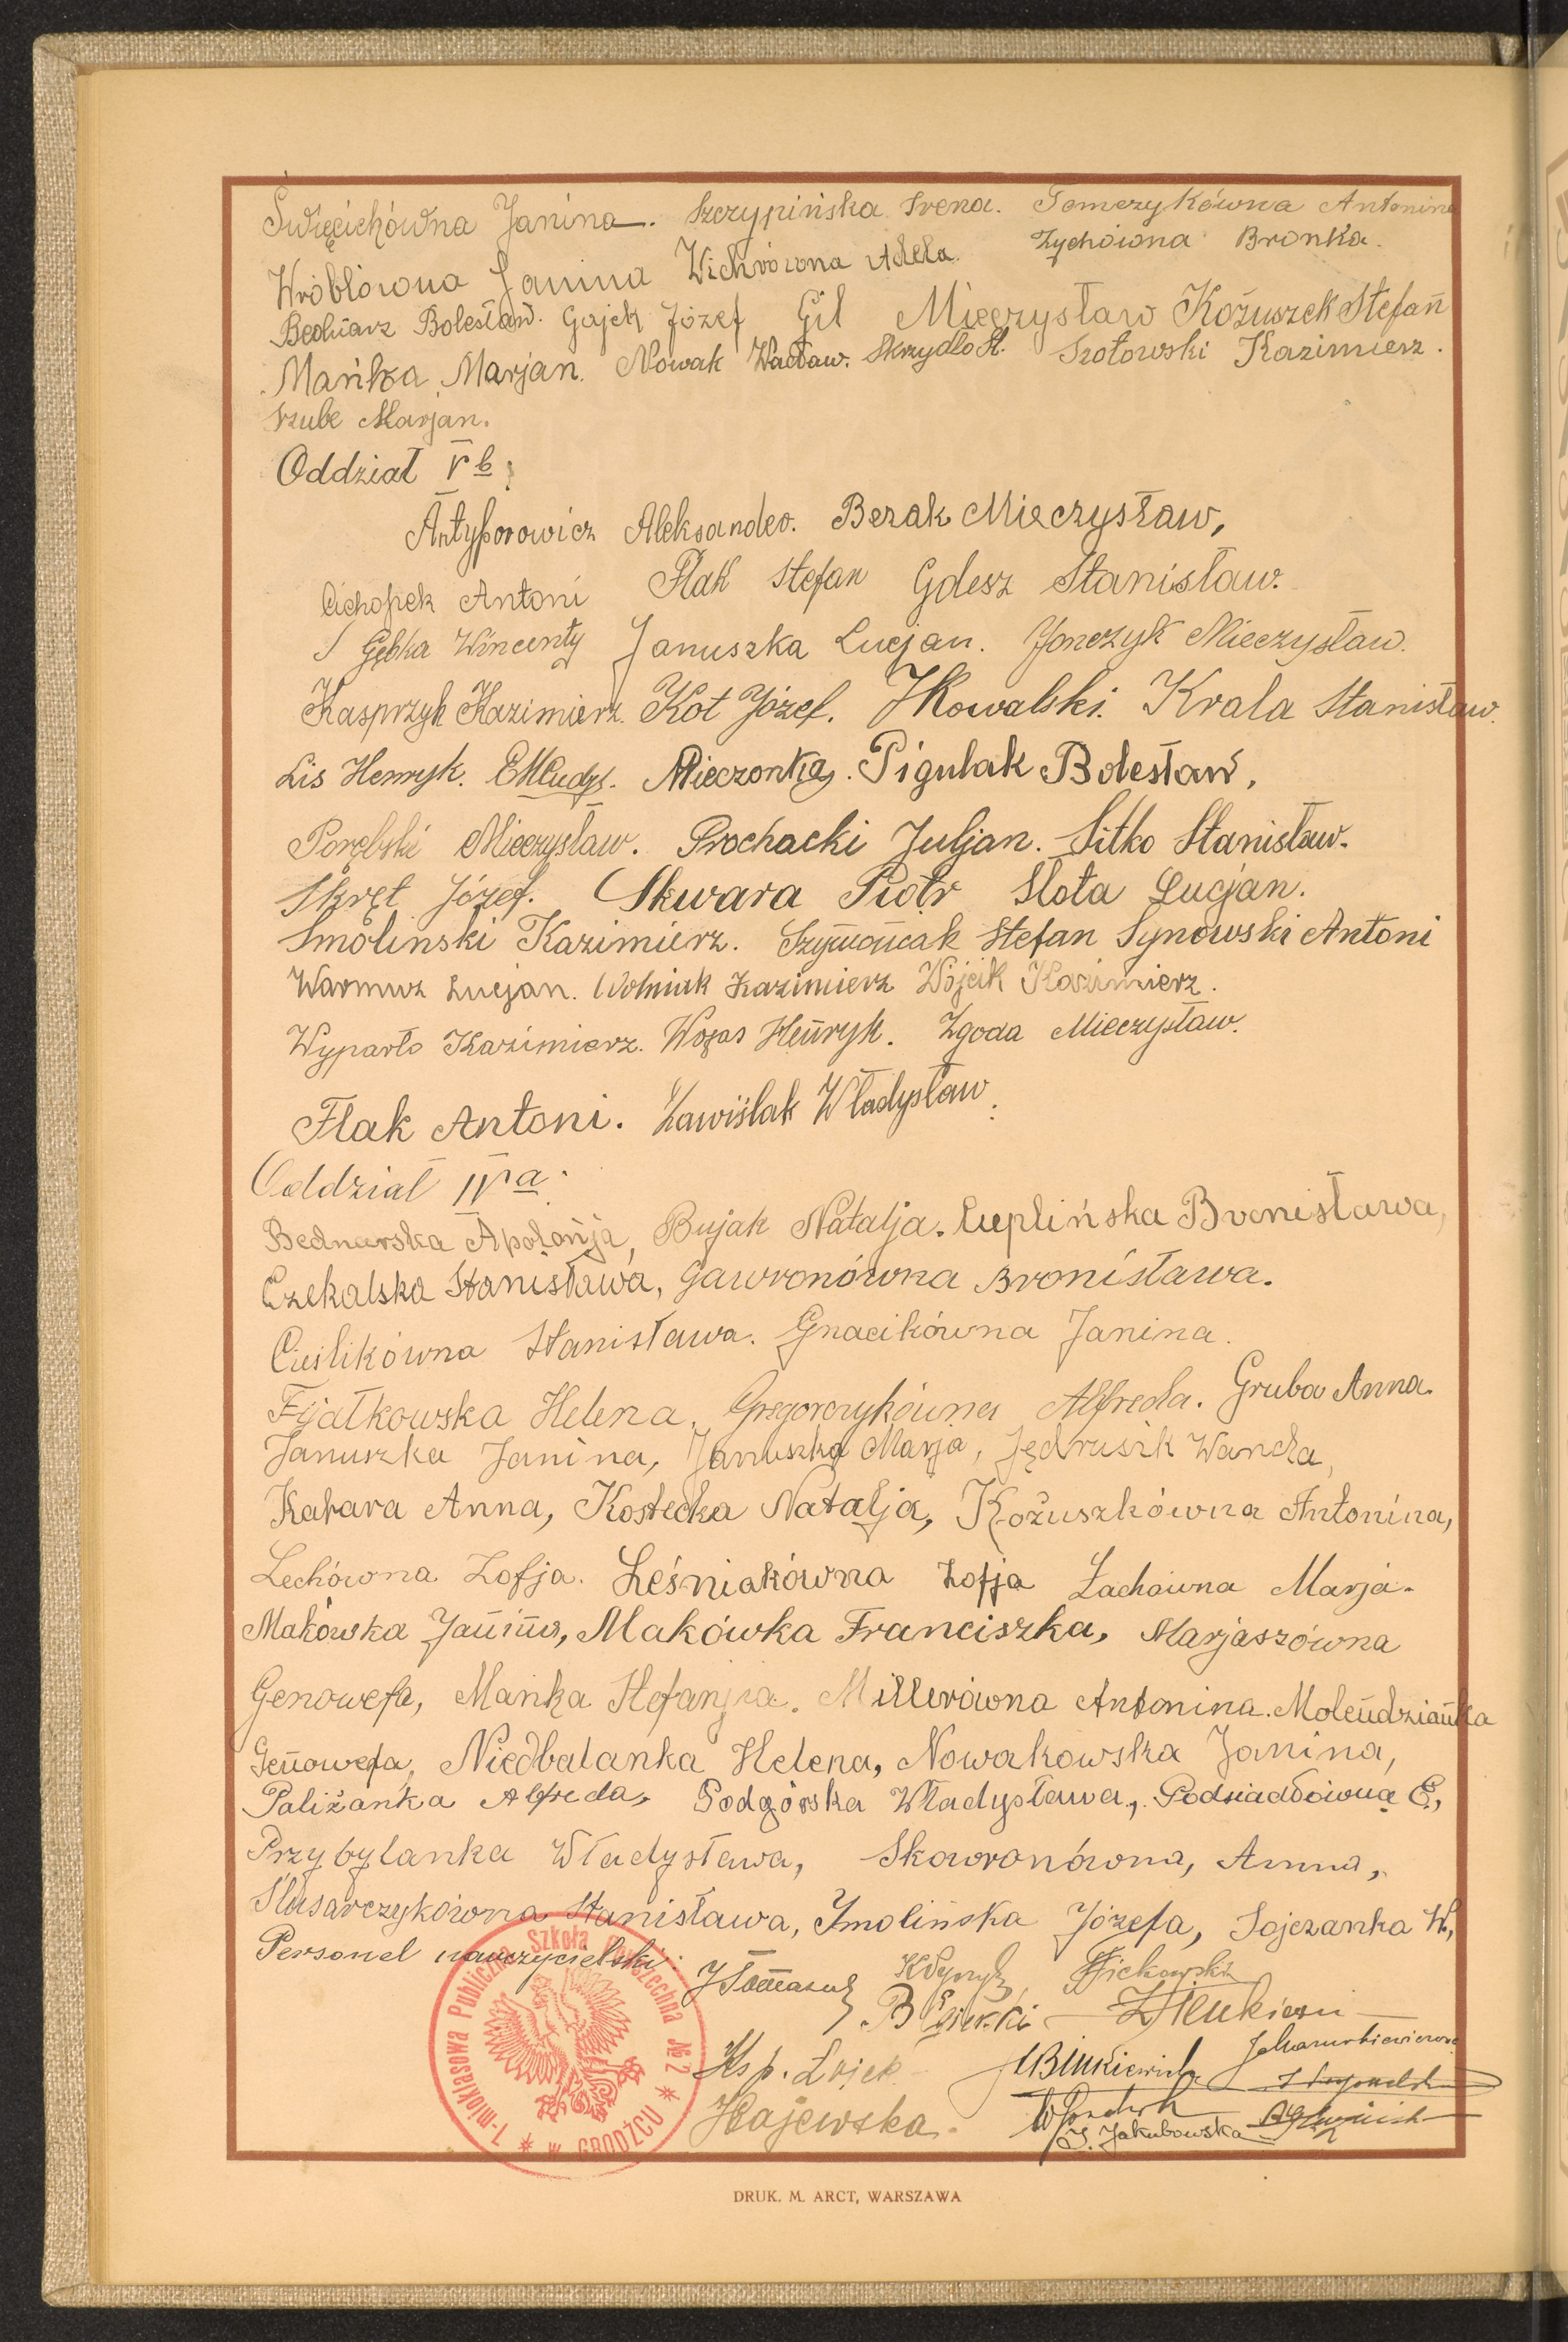 Święcichówna Janina. Szczypińska Irena. Tomczykówna Antonina
Wróblówna Janina Wichrówna Adela. Zychówna Bronka.
Bednarz Bolesław. Gajek Józef Gil Mieczysław Kożuszek Stefan
Mańka Marjan. Nowak Wacław. Skrzydło St. Szotowski Kazimierz.
Szube Marjan.
Oddział V b:
Antyporowicz Aleksander. Bezak Mieczysław,
Cichopek Antoni Flak Stefan Gdesz Stanisław.
Gębka Wincenty Januszka Lucjan. Jonczyk Mieczysław.
Kasprzyk Kazimierz. Kot Józef. J Kowalski. Krala Stanisław.
Lis Henryk. Mieczonka. Pigulak Bolesław.
Porębski Mieczysław. Prochacki Juljan. Sitko Stanisław.
Skręt Józef. Skwara Piotr Slota Lucjan.
Smoliński Kazimierz. Szymańcak Stefan Synowski Antoni
Warmuz Lucjan. Wolniak Kazimierz Wójcik Kazimierz.
Wyparło Kazimierz. Wozas Henryk. Zgoda Mieczysław.
Flak Antoni. Zawiślak Władysław.
Oddział IV a:
Bednarska Apolonja, Bujak Natalja. Cieplińska Bronisława,
Czekalska Stanisława, Gawronówna Bronisława.
Cieślikówna Stanisława. Gnacikówna Janina.
Fijałkowska Helena, Gregorczykówna Alfreda. Gruba Anna.
Januszka Janina, Januszka Marja, Jędrusik Wanda,
Katara Anna, Kostecka Natalja, Kożuszkówna Antonina,
Lechówna Zofja. Leśniakówna Zofja Łachówna Marja.
Makówska Janina, Makówka Franciszka, Marjaszówna
Genowefa, Mańka Stefanja. Millerówna Antonina. Molendzianka
Genowefa, Niedbalanka Helena, Nowakowska Janina,
Paliżanka Alfreda, Podgórska Władysława, Podsiadłówna E,
Przybylanka Władysława, Skowronówna, Anna,
Ślusarczykówna Stanisława, Smolińska Józefa, Sojczanka W,
Personel nauczycielski:
7-mioklasowa Publiczna Szkoła Powszechna № 2 w GRODŹCU
Ks p. Łojek
Hajewska.
J. Jakubowska
DRUK. M. ARCT, WARSZAWA